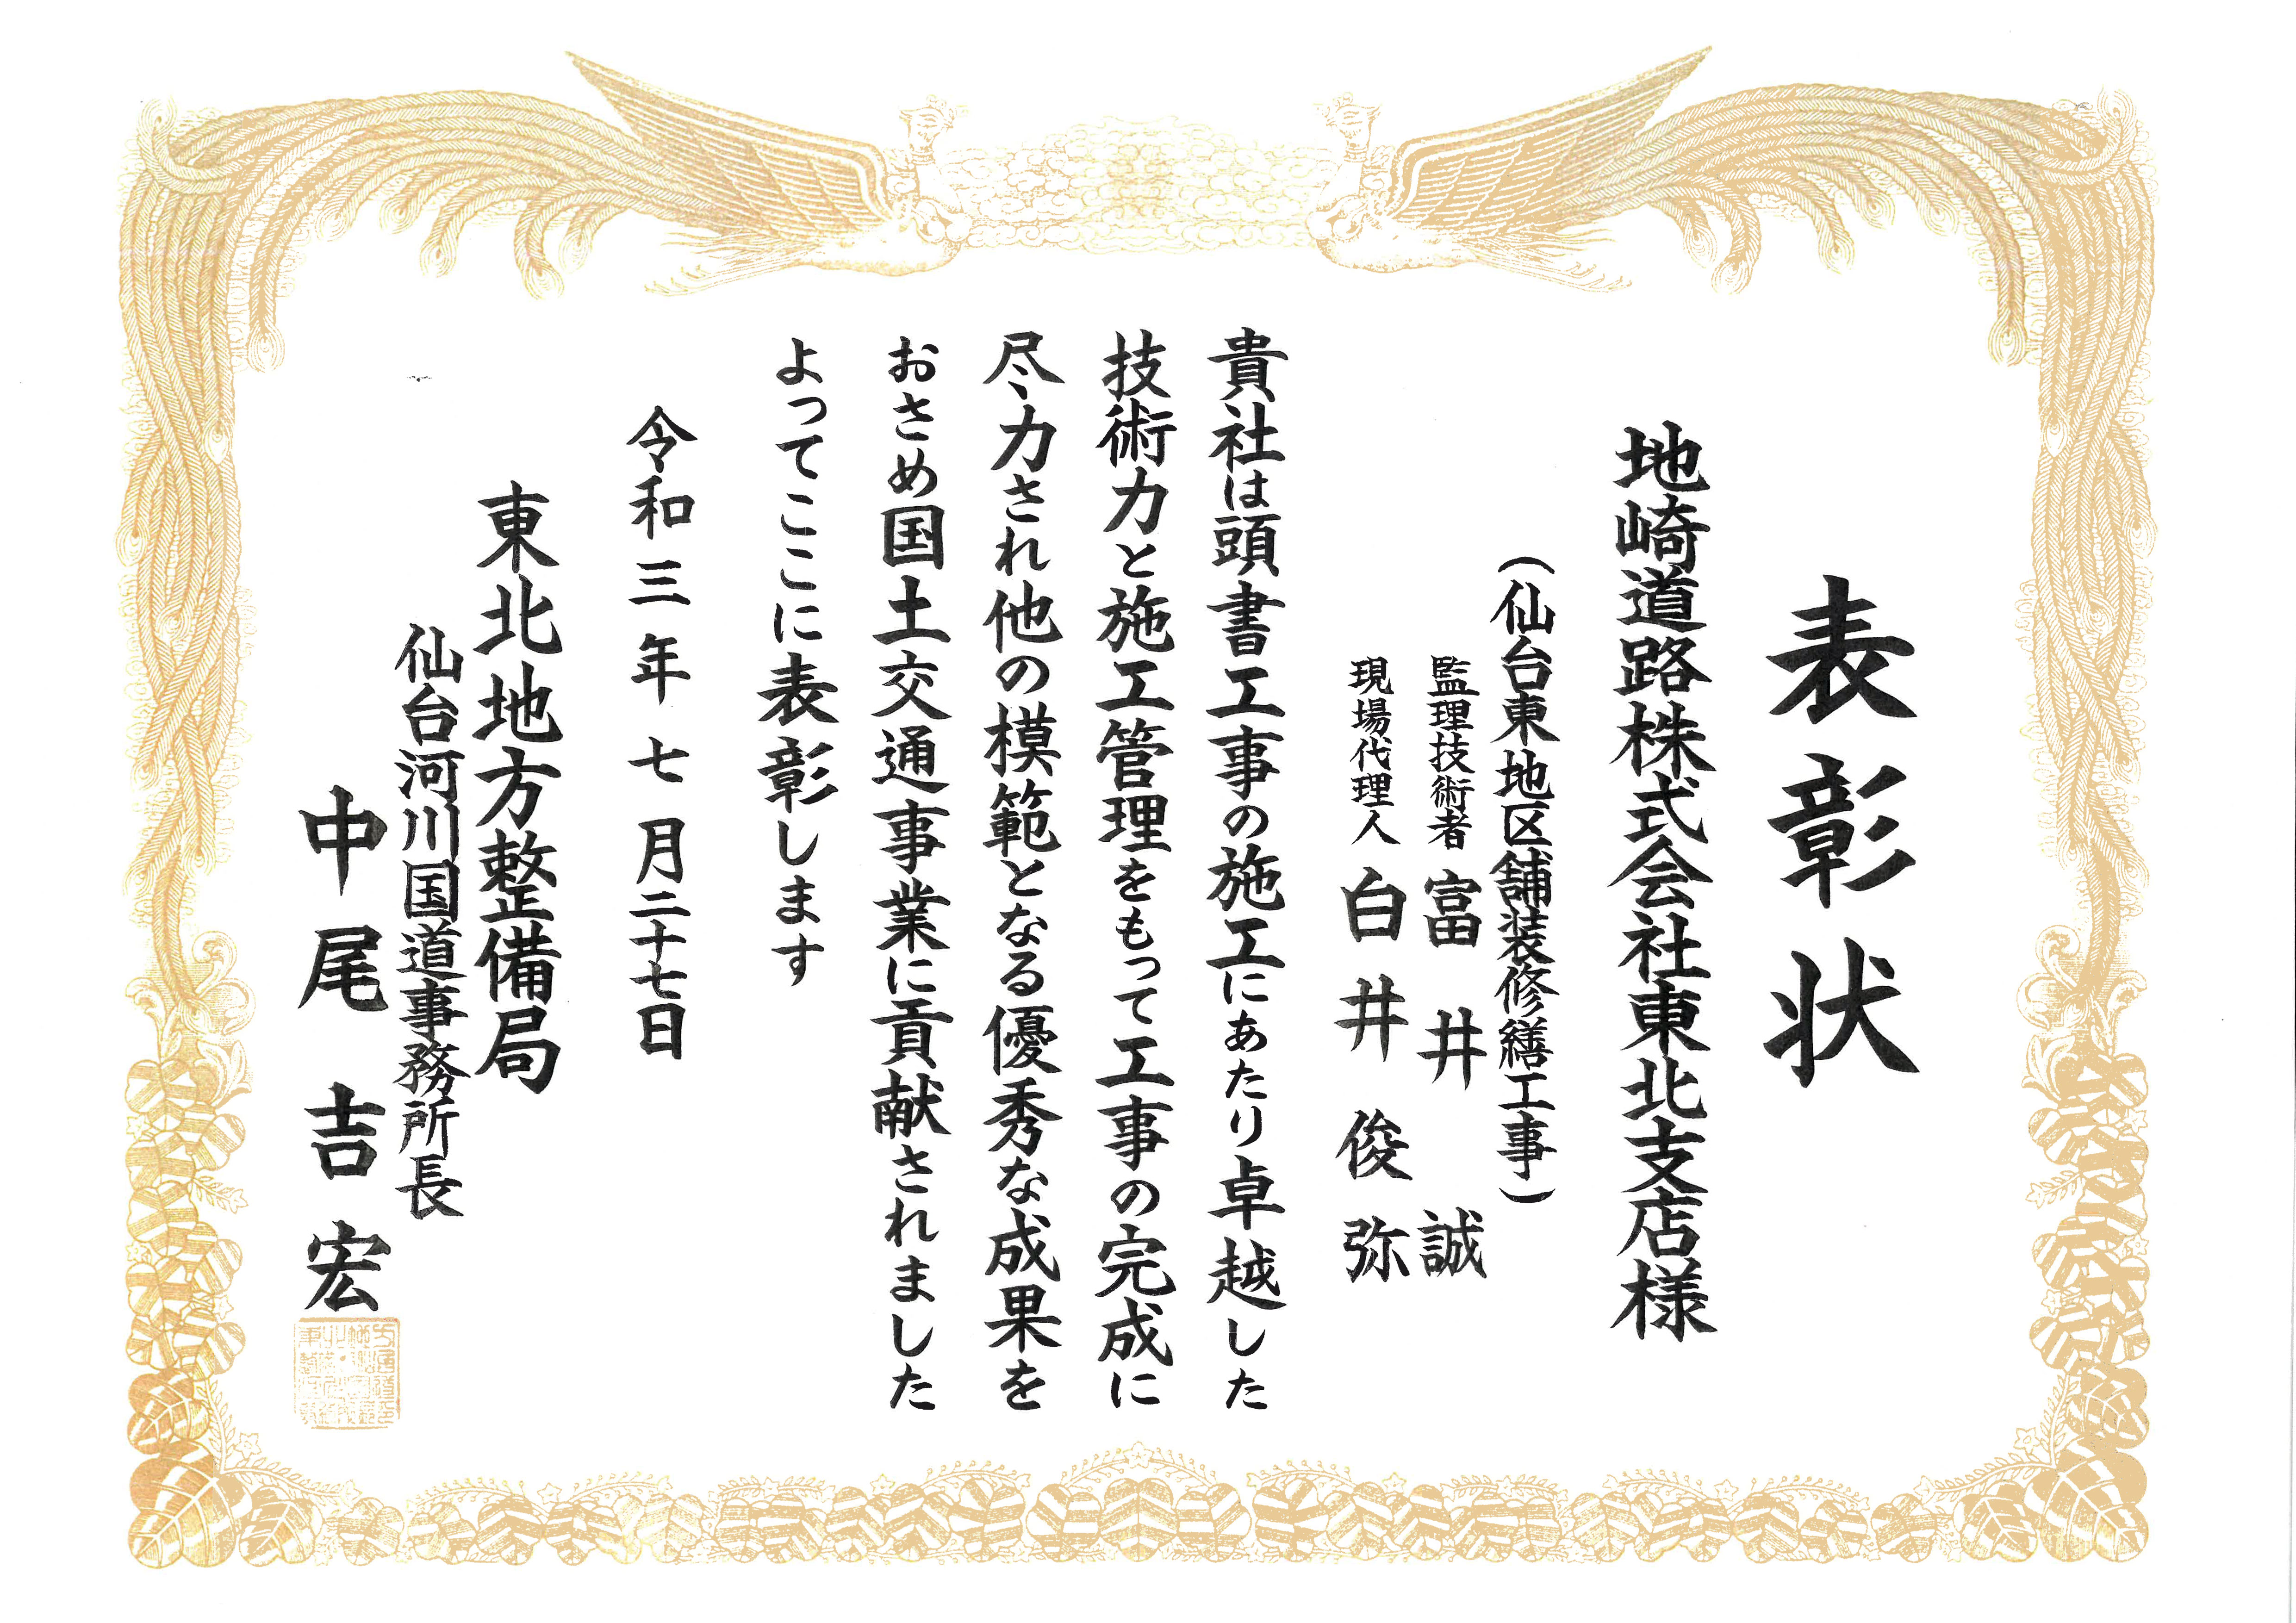 表彰状
地崎道路株式会社東北支店様
(仙台東地区舗装修繕工事)
監理技術者 富井 誠
現場代理人 白井俊弥
貴社は頭書工事の施工にあたり卓越した
技術力と施工管理をもって工事の完成に
尽力され他の模範となる優秀な成果を
おさめ国土交通事業に貢献されました
よってここに表彰します
令和三年七月二十七日
東北地方整備局
仙台河川国道事務所長
中尾吉宏